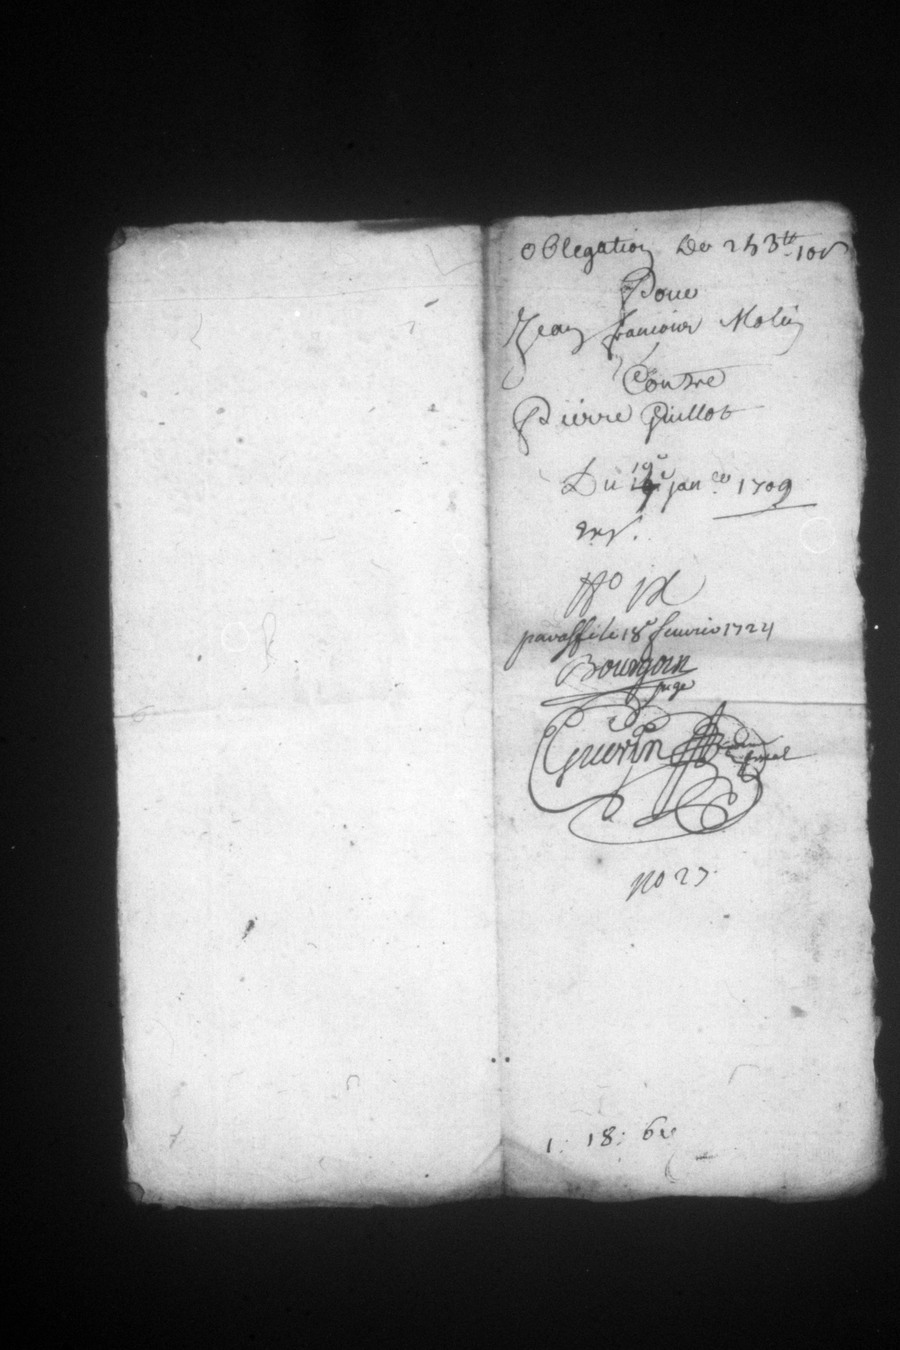 Obligation De 253tt 10s
Pour
Jean francois Molin
Contre
Pierre Guillot
Du 19e janer 1709
No
paraffé le 18e feuvrier 1724
Bourgoin
juge
Guerin
fiscal
no 27
1: 18: 6d